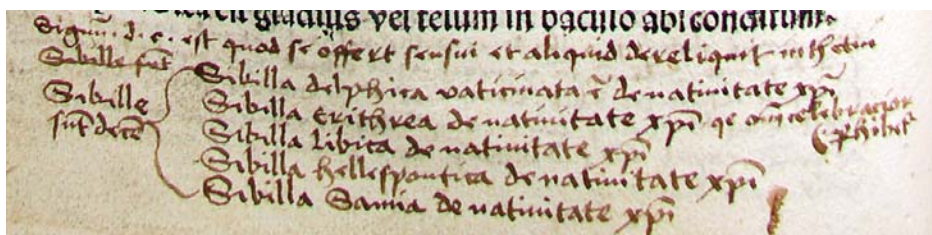 gladius vel telum in baculo absconditum.
Signū. d. e. est quod se offert sensui et aliquid dereliquit
Sibille sūt
Sibilla delphica vaticinata ē de natiuitate xp̄i
Sibille
sūt decē
Sibilla Erithrea de natiuitate xp̄i qe om̄ celebracior
phibet
Sibilla Libica de natiuitate xp̄i
Sibilla hellespontica de natiuitate xp̄i
Sibilla Samia de natiuitate xp̄i